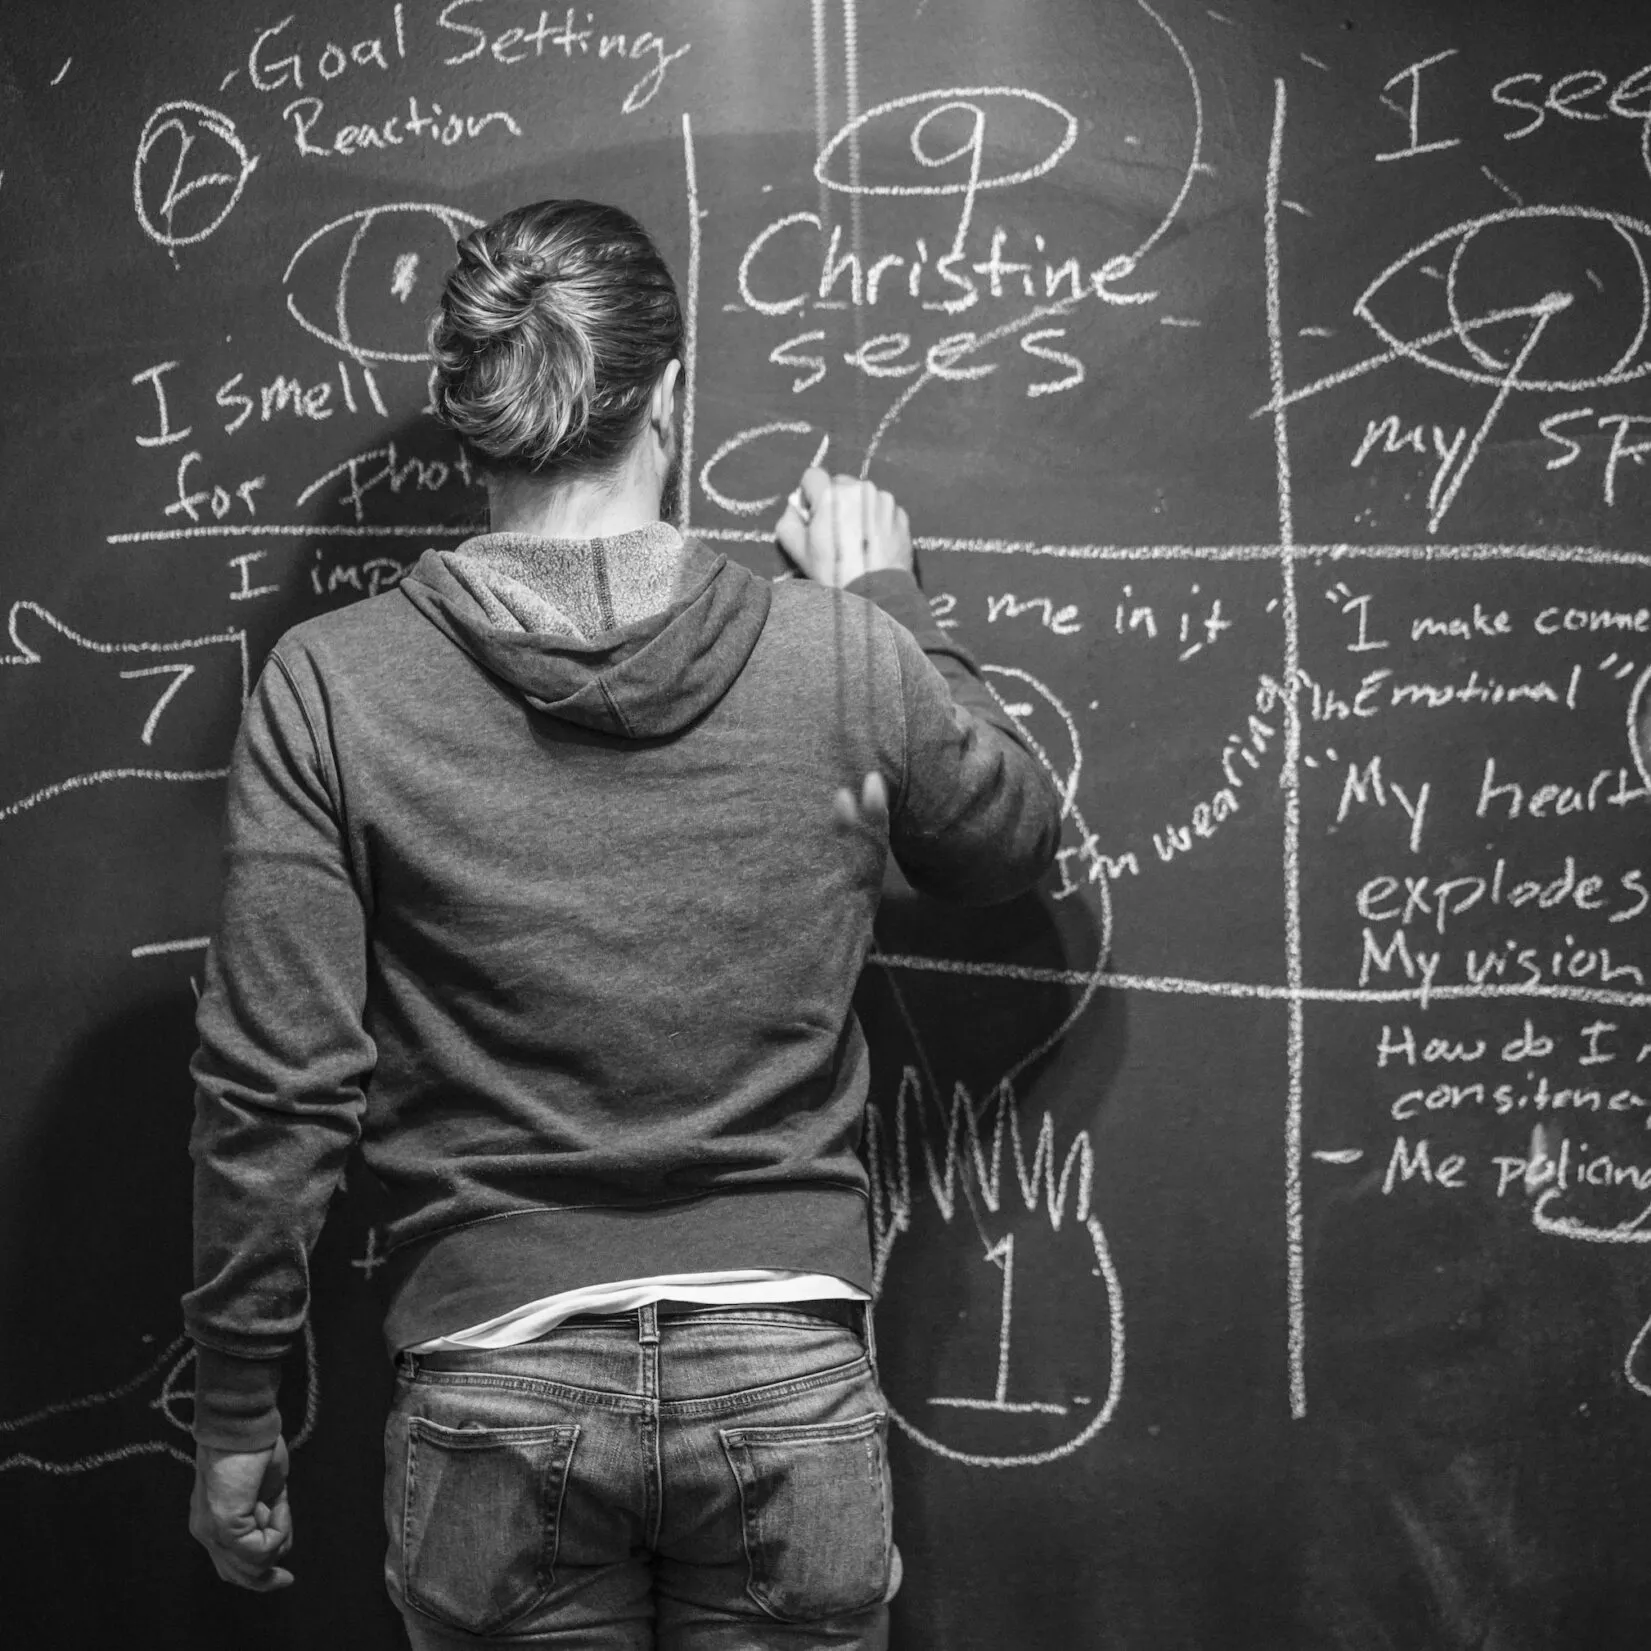 Goal Setting
Reaction
2
I smell
for
9
Christine
sees
C
I see
my
I
7
me in it
I'm wearing
1
"I make conne
In Emotional"
"My heart
explodes
My vision
How do I
consitenc
- Me policing